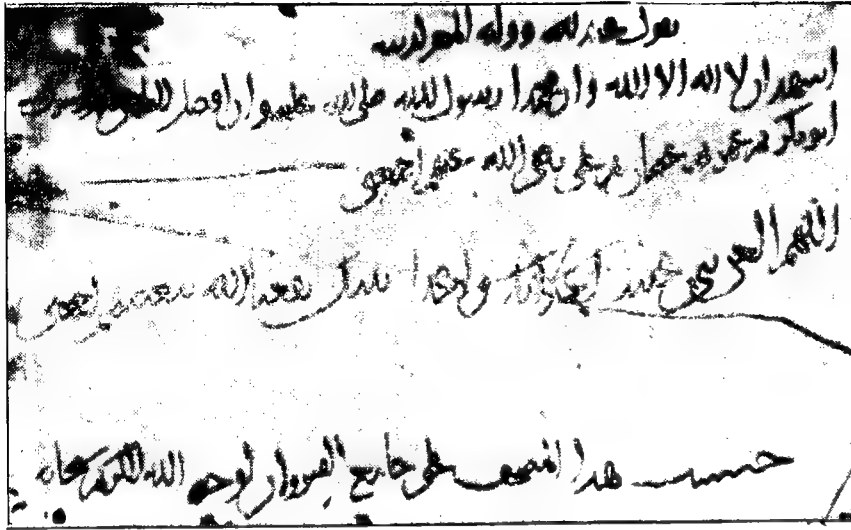 يقول عبد الله ووليه المعز لدينه
اشهد ان لا اله الا الله وان محمدا رسول الله صلى الله عليه وان افضل الناس بعد
ابو بكر ثم عمر ثم عثمان ثم علي رضي الله عنهم اجمعين
اللهم العن بني عبيد اعداك واعدا نبيك نفعنا الله ببغضهم اجمعين
حبست هذا المصحف على جامع القيروان لوجه الله الكريم سبحانه